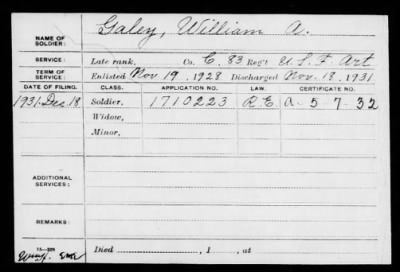 Galey, William A.
NAME OF SOLDIER:
SERVICE: Late rank, Co. C. 83 Reg't U.S.F. Art
TERM OF SERVICE: Enlisted Nov 19, 1928 Discharged Nov. 18, 1931
DATE OF FILING. CLASS. APPLICATION NO. LAW. CERTIFICATE NO.
1931 Dec 18 Soldier, 1710223 R.E. A-5-7-32
Widow,
Minor,
ADDITIONAL SERVICES:
REMARKS:
Died , 1 , at